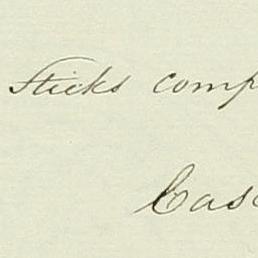 Sticks comp
Cas